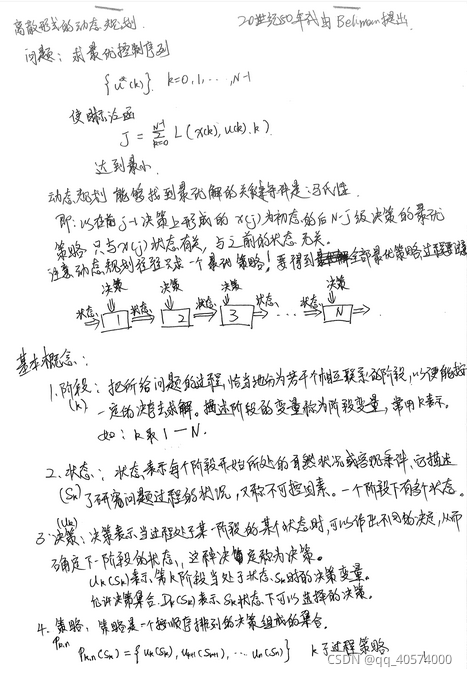 离散形式的动态规划. 20世纪50年代由Bellman提出.
问题: 求最优控制序列
{u*(k)}. k=0,1,...,N-1
使目标泛函
J = Σ_{k=0}^{N-1} L(x(k),u(k),k)
达到最小.
动态规划能够找到最优解的关键条件是:马氏性.
即:以在前j-1决策上形成的x(j)为初态的后N-j级决策的最优
策略只与x(j)状态有关,与之前的状态无关.
注意动态规划往往只求一个最优策略!要得到全部最优策略过程
决策 决策 决策 决策
状态 1 状态 2 状态 3 状态 ... 状态 N
基本概念:
1.阶段: 把所给问题的过程,恰当地分为若干个相互联系的阶段,以便能按
(k) 一定的次序去求解。描述阶段的变量称为阶段变量,常用k表示。
如: k取1—N.
2.状态: 状态表示每个阶段开始所处的自然状况或客观条件,它描述
(Sk) 了研究问题过程的状况,又称不可控因素。一个阶段下有多个状态。
(uk)
3决策: 决策表示当过程处于某一阶段的某个状态时,可以作出不同的决定,从而
确定下一阶段的状态,这种决定称为决策。
uk(Sk)表示,第k阶段当处于状态Sk时的决策变量。
允许决策集合.Dk(Sk)表示Sk状态下可以选择的决策。
4. 策略: 策略是一个按顺序排列的决策组成的集合。
Pk,n
Pk,n(Sk)={uk(Sk), uk+1(Sk+1), ... un(Sn)} k子过程策略
CSDN @qq_40574000